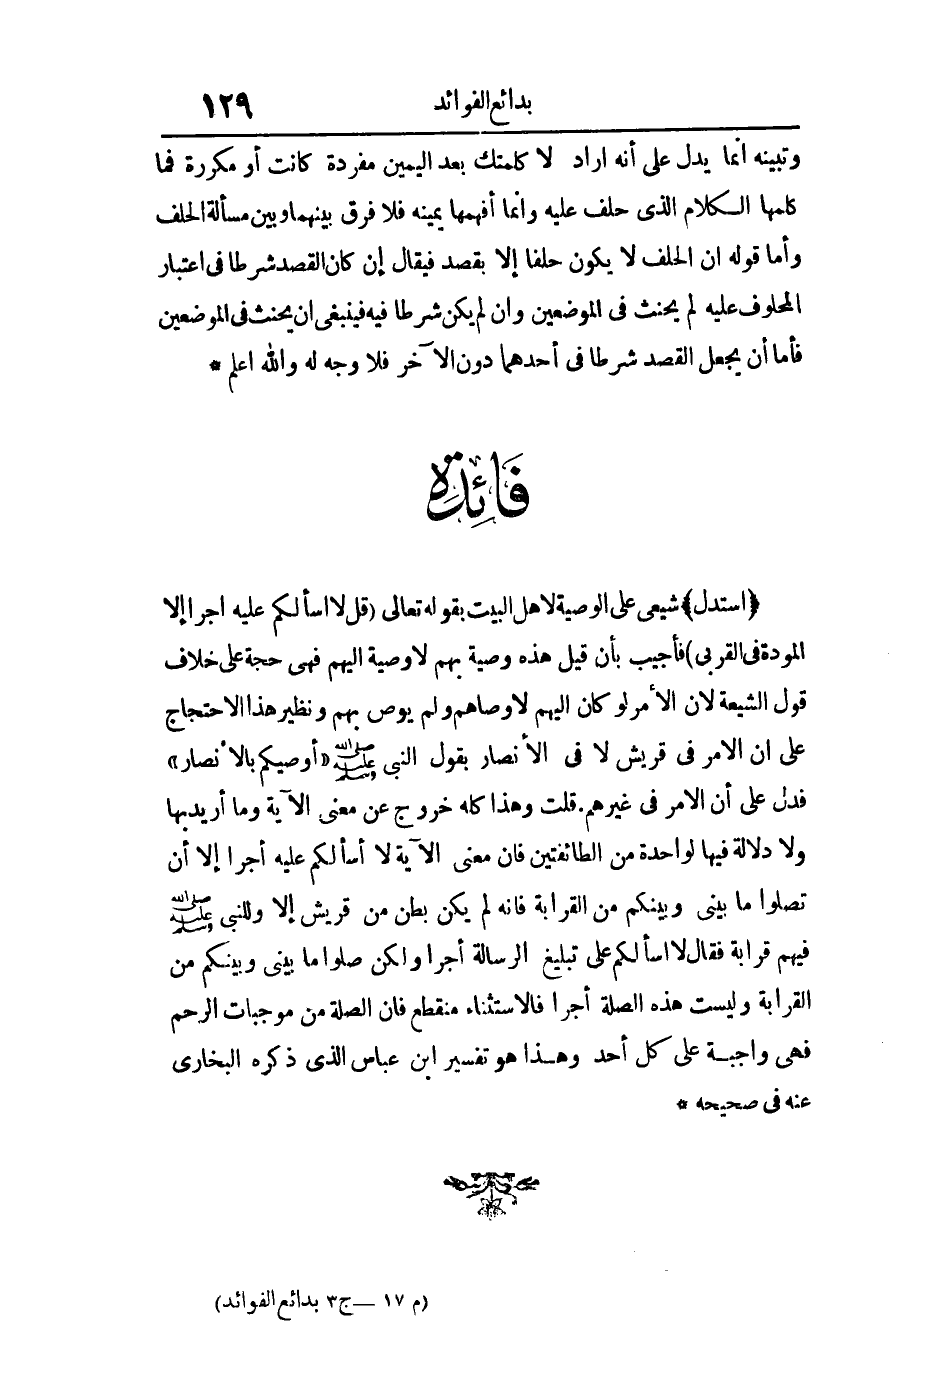 بدائع الفوائد ١٢٩
وتبينه انما يدل على أنه اراد لا كلمتك بعد اليمين مفردة كانت أو مكررة فما
كلمها الكلام الذى حلف عليه وانما أفهمها يمينه فلا فرق بينهما وبين مسألة الحلف
وأما قوله ان الحلف لا يكون حلفا إلا بقصد فيقال إن كان القصد شرطا فى اعتبار
المحلوف عليه لم يحنث فى الموضعين وان لم يكن شرطا فيه فينبغى ان يحنث فى الموضعين
فأما أن يجعل القصد شرطا فى أحدهما دون الآخر فلا وجه له والله اعلم *
فائدة
﴿استدل﴾ شيعى على الوصية لاهل البيت بقوله تعالى (قل لا اسألكم عليه اجرا إلا
المودة فى القربى) فأجيب بأن قيل هذه وصية بهم لا وصية اليهم فهى حجة على خلاف
قول الشيعة لان الأمر لو كان اليهم لاوصاهم ولم يوص بهم ونظير هذا الاحتجاج
على ان الامر فى قريش لا فى الأنصار بقول النبى ﷺ «أوصيكم بالأنصار»
فدل على أن الامر فى غيرهم. قلت وهذا كله خروج عن معنى الآية وما أريد بها
ولا دلالة فيها لواحدة من الطائفتين فان معنى الآية لا أسألكم عليه أجرا إلا أن
تصلوا ما بينى وبينكم من القرابة فانه لم يكن بطن من قريش إلا وللنبى ﷺ
فيهم قرابة فقال لا اسألكم على تبليغ الرسالة أجرا ولكن صلوا ما بينى وبينكم من
القرابة وليست هذه الصلة أجرا فالاستثناء منقطع فان الصلة من موجبات الرحم
فهى واجبة على كل أحد وهذا هو تفسير ابن عباس الذى ذكره البخارى
عنه فى صحيحه *
(م ١٧ — ج ٣ بدائع الفوائد)